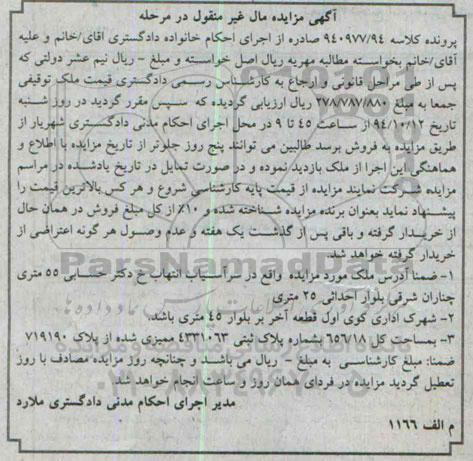 آگهی مزایده مال غیر منقول در مرحله
پرونده کلاسه ۹۴۰۹۷۷/۹۴ صادره از اجرای احکام خانواده دادگستری آقای/خانم و علیه
آقای/خانم بخواسته مطالبه مهریه ریال اصل خواسته و مبلغ – ریال نیم عشر دولتی که
پس از طی مراحل قانونی و ارجاع به کارشناس رسمی دادگستری قیمت ملک توقیفی
جمعا به مبلغ ۲۷۸/۷۸۷/۸۸۰ ریال ارزیابی گردیده که سپس مقرر گردید در روز شنبه
تاریخ ۹۴/۱۰/۱۲ از ساعت ۴۵ تا ۹ در محل اجرای احکام مدنی دادگستری شهریار از
طریق مزایده به فروش برسد طالبین می توانند پنج روز جلوتر از تاریخ مزایده با اطلاع و
هماهنگی این اجرا از ملک بازدید نموده و در صورت تمایل در تاریخ یادشده در مراسم
مزایده شرکت نمایند مزایده از قیمت پایه کارشناسی شروع و هر کس بالاترین قیمت را
پیشنهاد نماید بعنوان برنده مزایده شناخته شده و ۱۰٪ از کل مبلغ فروش در همان حال
از خریدار گرفته و باقی پس از گذشت یک هفته و عدم وصول هر گونه اعتراضی از
خریدار گرفته خواهد شد.
۱- ضمنا آدرس ملک مورد مزایده واقع در سرآسیاب انتهای خ دکتر حسابی ۵۵ متری
چناران شرقی بلوار احداثی ۲۵ متری
۲- شهرک اداری کوی اول قطعه آخر بر بلوار ۴۵ متری باشد.
۳- بمساحت کل ۶۵۶/۱۸ بشماره پلاک ثبتی ۴۳۳۱۰۶۳ ممیزی شده از پلاک ۷۱۹۱۹۰
ضمنا: مبلغ کارشناسی به مبلغ – ریال می باشد و چنانچه روز مزایده مصادف با روز
تعطیل گردید مزایده در فردای همان روز و ساعت انجام خواهد شد
مدیر اجرای احکام مدنی دادگستری ملارد
م الف ۱۱۶۶
ParsNamadData